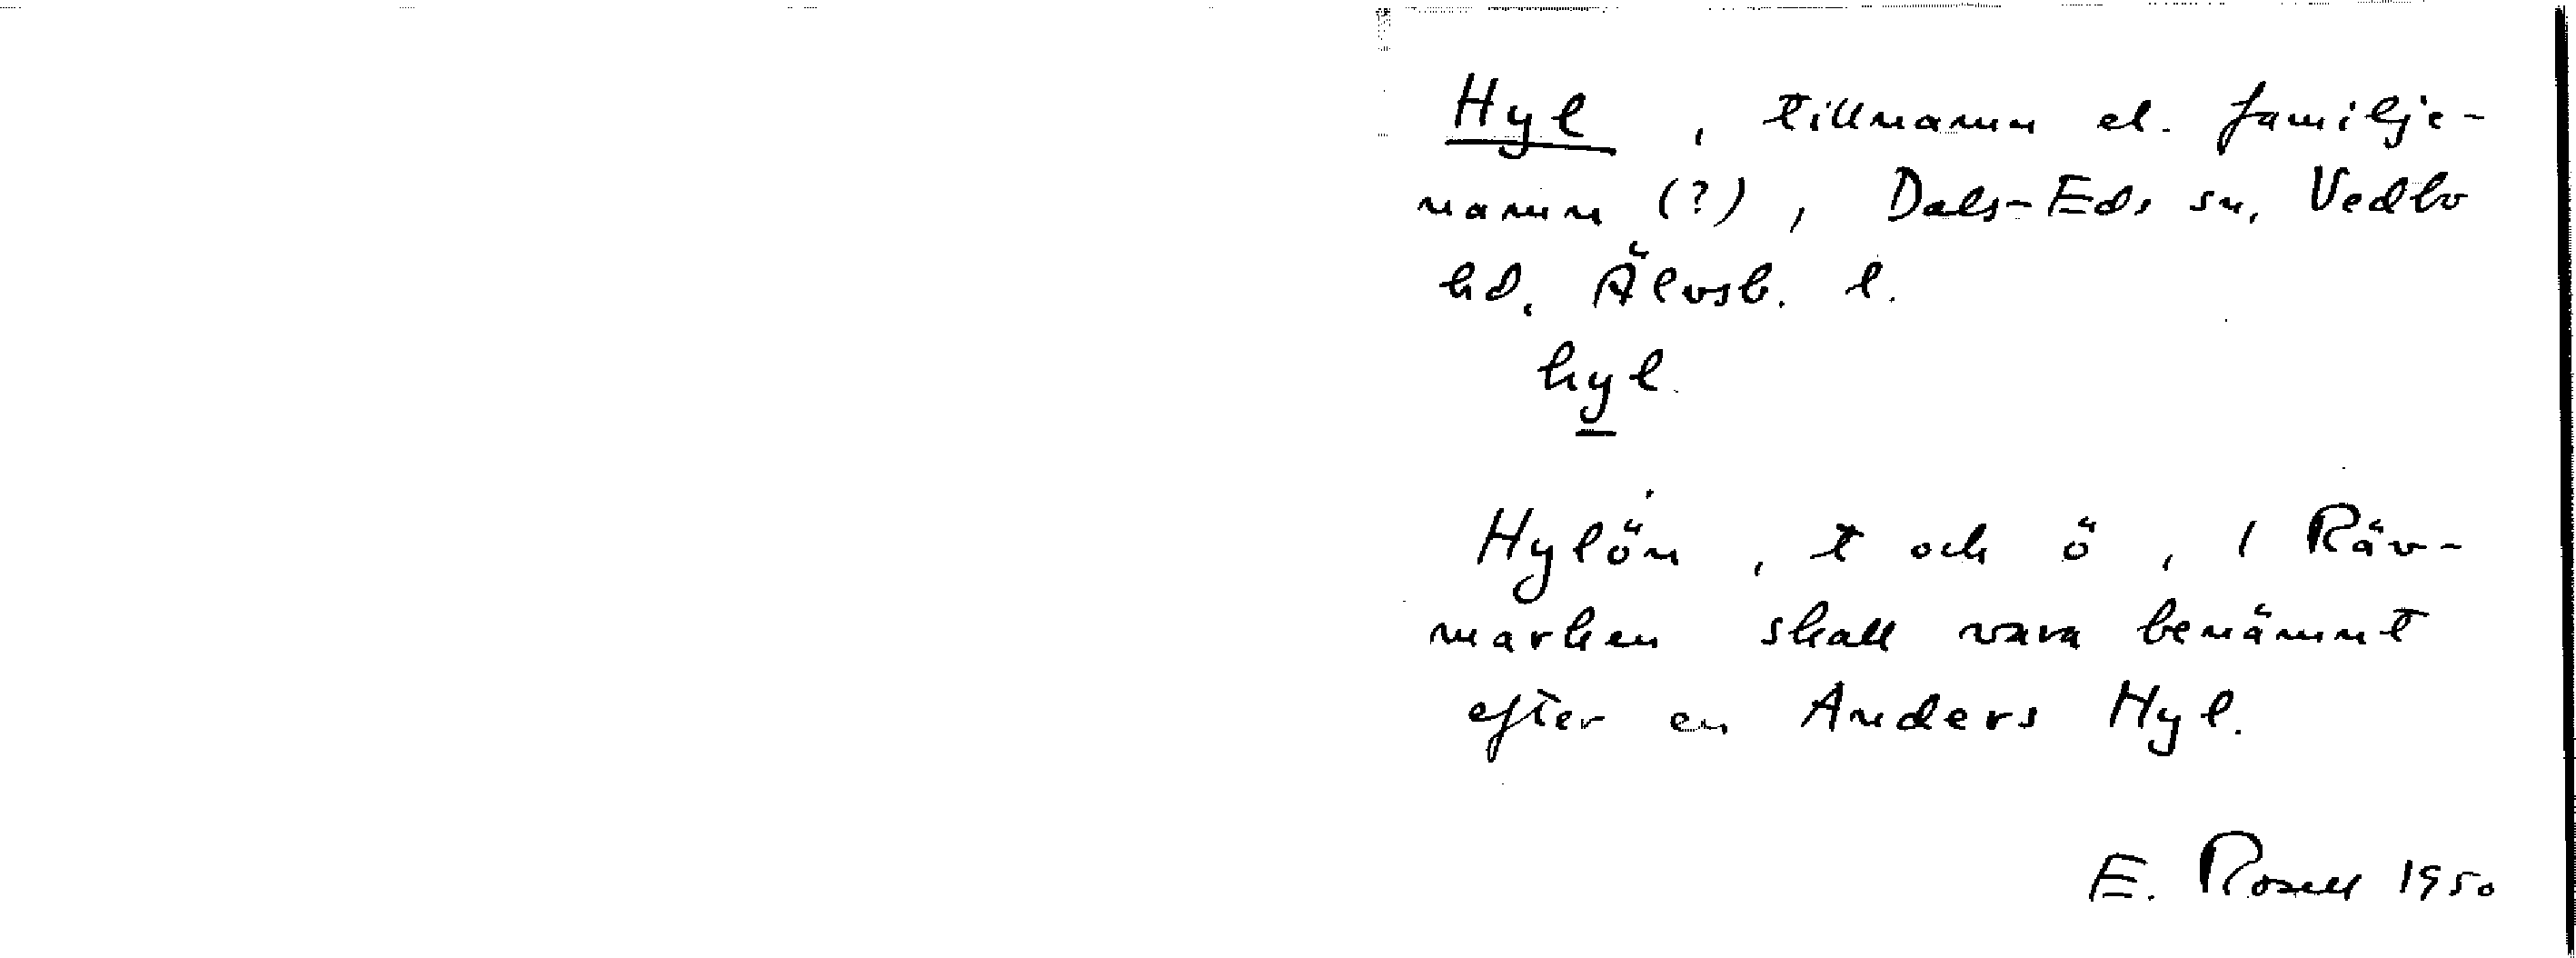 Hyl, tillnamn el. familje-
namn (?), Dals-Eds sn, Vedbo
hd, Älvsb. l.
hyl.
Hylön, t och ö, / Räv-
marken skall vara benämnt
efter en Anders Hyl.
E. Rosell 1950